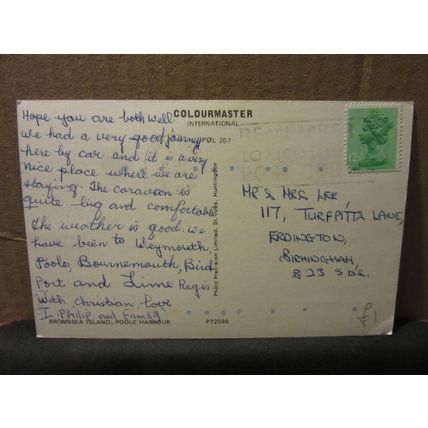 Hope you are both well
we had a very good journey
here by car and it is a very
nice place where we are
staying. The caravan is
quite big and comfortable
The weather is good. we
have been to Weymouth
Poole, Bournemouth, Bird
Port and Lime Regis
With Christian love
Philip and Family
BROWNSEA ISLAND, POOLE HARBOUR
PT2599
COLOURMASTER
INTERNATIONAL
POL 257
Photo Precision Limited, St. Ives, Huntingdon
REMEMBER
MR & MRS LEE,
117, TURFPITTS LANE,
ERDINGTON,
BIRMINGHAM,
B23
£1